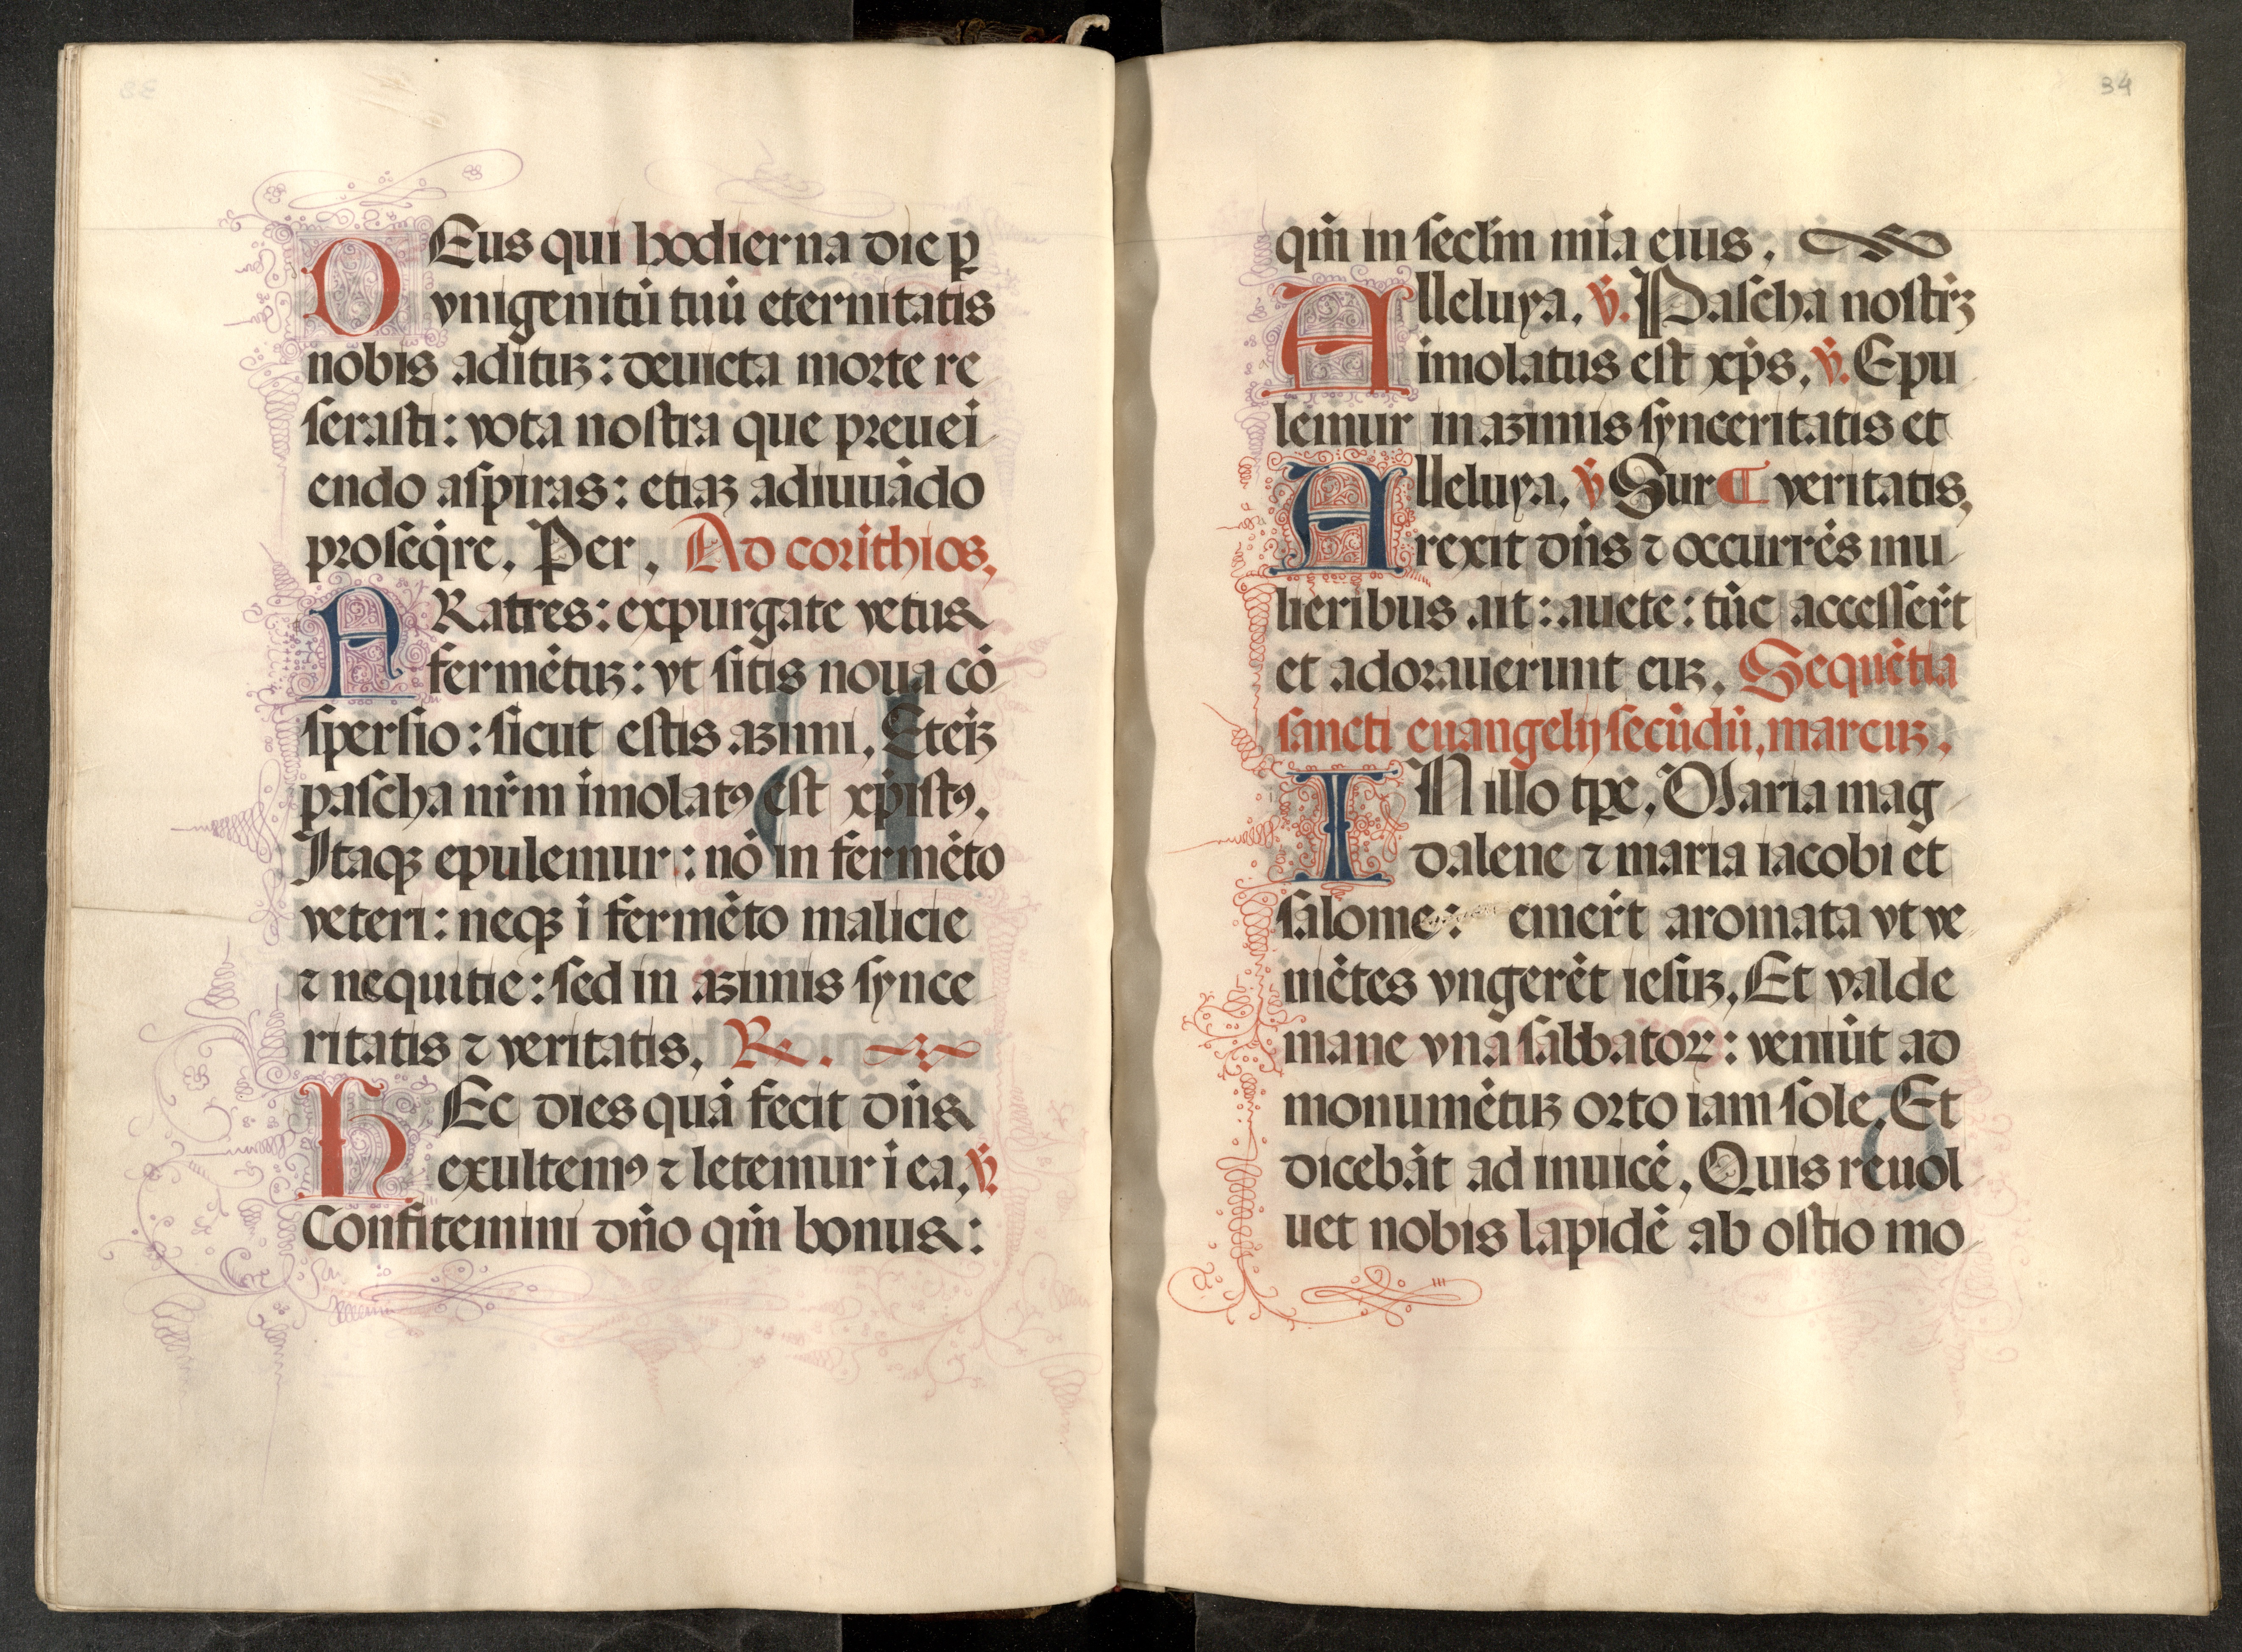 DEus qui hodierna die ꝑ
vnigenitū tuū eternitatis
nobis adituꝫ: deuicta morte re
ſeraſti: vota noſtra que preuei
endo aſpiras: etiaꝫ adiuuādo
proſeq̄re. Per. Ad corīthios.
FRatres: expurgate vetus
fermētuꝫ: vt ſitis noua cō
ſperſio: ſicut eſtis azimi. Eteīꝫ
paſcha nr̄m imolatꝰ eſt xp̄iſtꝰ.
Itaqꝫ epulemur: nō in fermēto
veteri: neqꝫ ī fermēto malicie
⁊ nequitie: ſed in azimis ſynce
ritatis ⁊ veritatis. ℟.
HEc dies quā fecit dn̄s
exultemꝰ ⁊ letemur ī ea. ℣.
Confitemini dn̄o qm̄ bonus:
34
qm̄ in ſecl̄m mīa eius.
Alleluya. ℣. Paſcha noſtrꝫ
īmolatus eſt xp̄s. ℣. Epu
lemur in azimis ſynceritatis et
Alleluya. ℣ Sur ¶ veritatis.
rexit dn̄s ⁊ occurrēs mu
lieribus ait: auete: tūc acceſſer̄t
et adorauerunt euꝫ. Sequētia
ſancti euangelij ſecūdū. marcuꝫ.
IN illo tp̄e. Maria mag
dalene ⁊ maria iacobi et
ſalome: emer̄t aromata vt ve
niētes vngerēt ieſuꝫ. Et valde
mane vna ſabbatoꝝ: veniūt ad
monumētuꝫ orto iam ſole. Et
dicebāt ad inuicē. Quis reuol
uet nobis lapidē ab oſtio mo